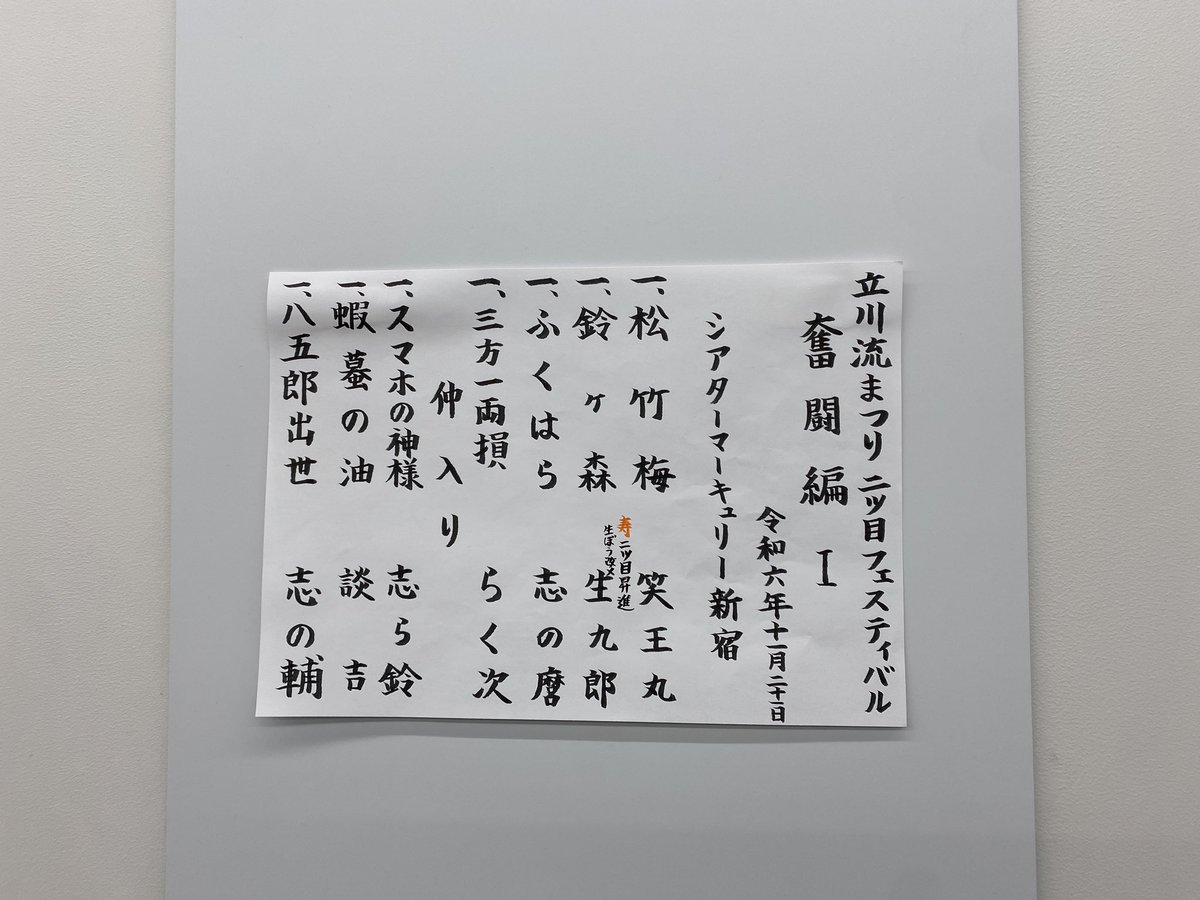 立川流まつり 二ツ目フェスティバル
奮闘編 I
令和六年十一月二十一日
シアターマーキュリー新宿
一、松竹梅 笑王丸
寿 二ツ目昇進
生ぼう改メ
一、鈴ヶ森 生九郎
一、ふくはら 志の麿
一、三方一両損 らく次
仲入り
一、スマホの神様 志ら鈴
一、蝦蟇の油 談吉
一、八五郎出世 志の輔